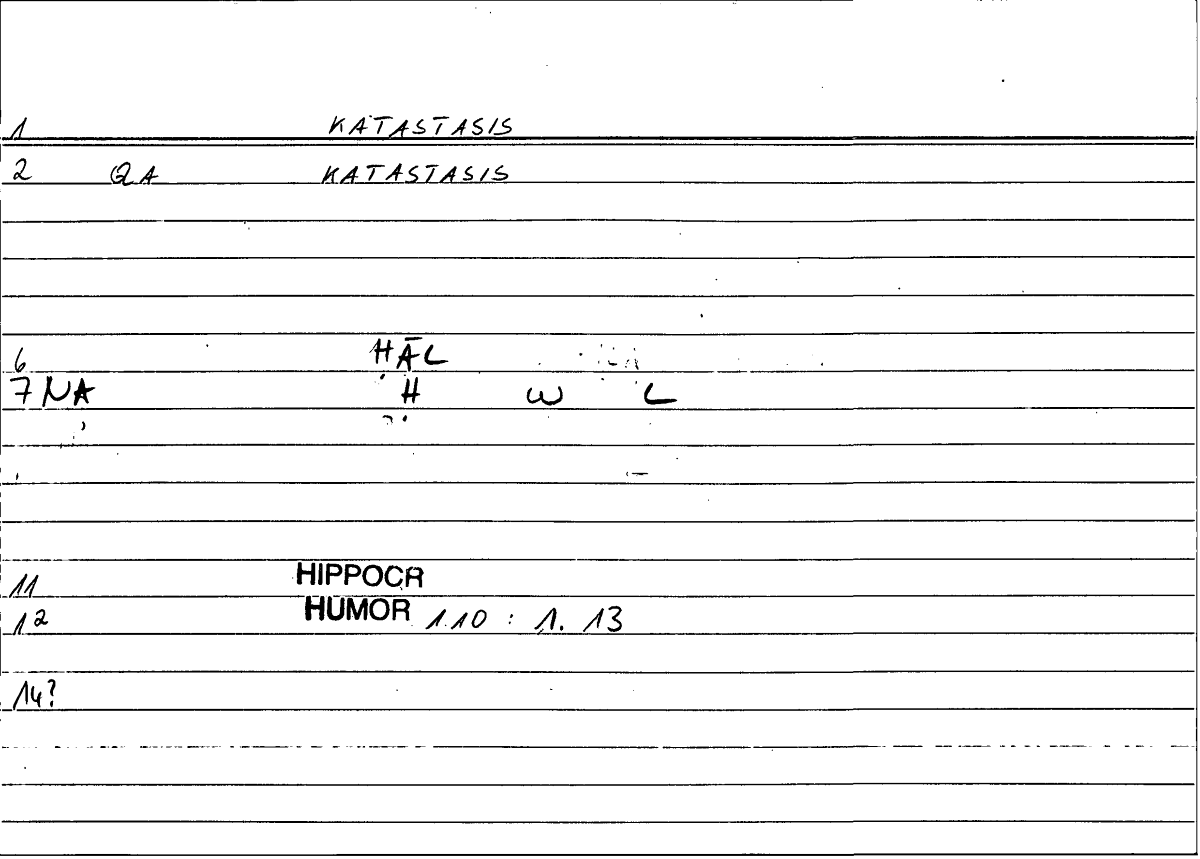 1 KATASTASIS
2 QA KATASTASIS
6 HĀL
7 NA H W L
11 HIPPOCR
12 HUMOR 1.10 : 1. 13
14?